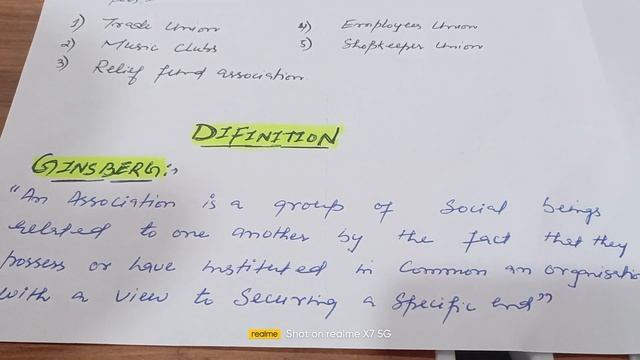 1) Trade Union
2) Music Clubs
3) Relief fund association
4) Employees Union
5) Shopkeeper Union
DIFINITION
GINSBERG:-
"An Association is a group of Social beings
related to one another by the fact that they
possess or have instituted in Common an organisatio
with a view to Securing a Specific end"
realme Shot on realme X7 5G